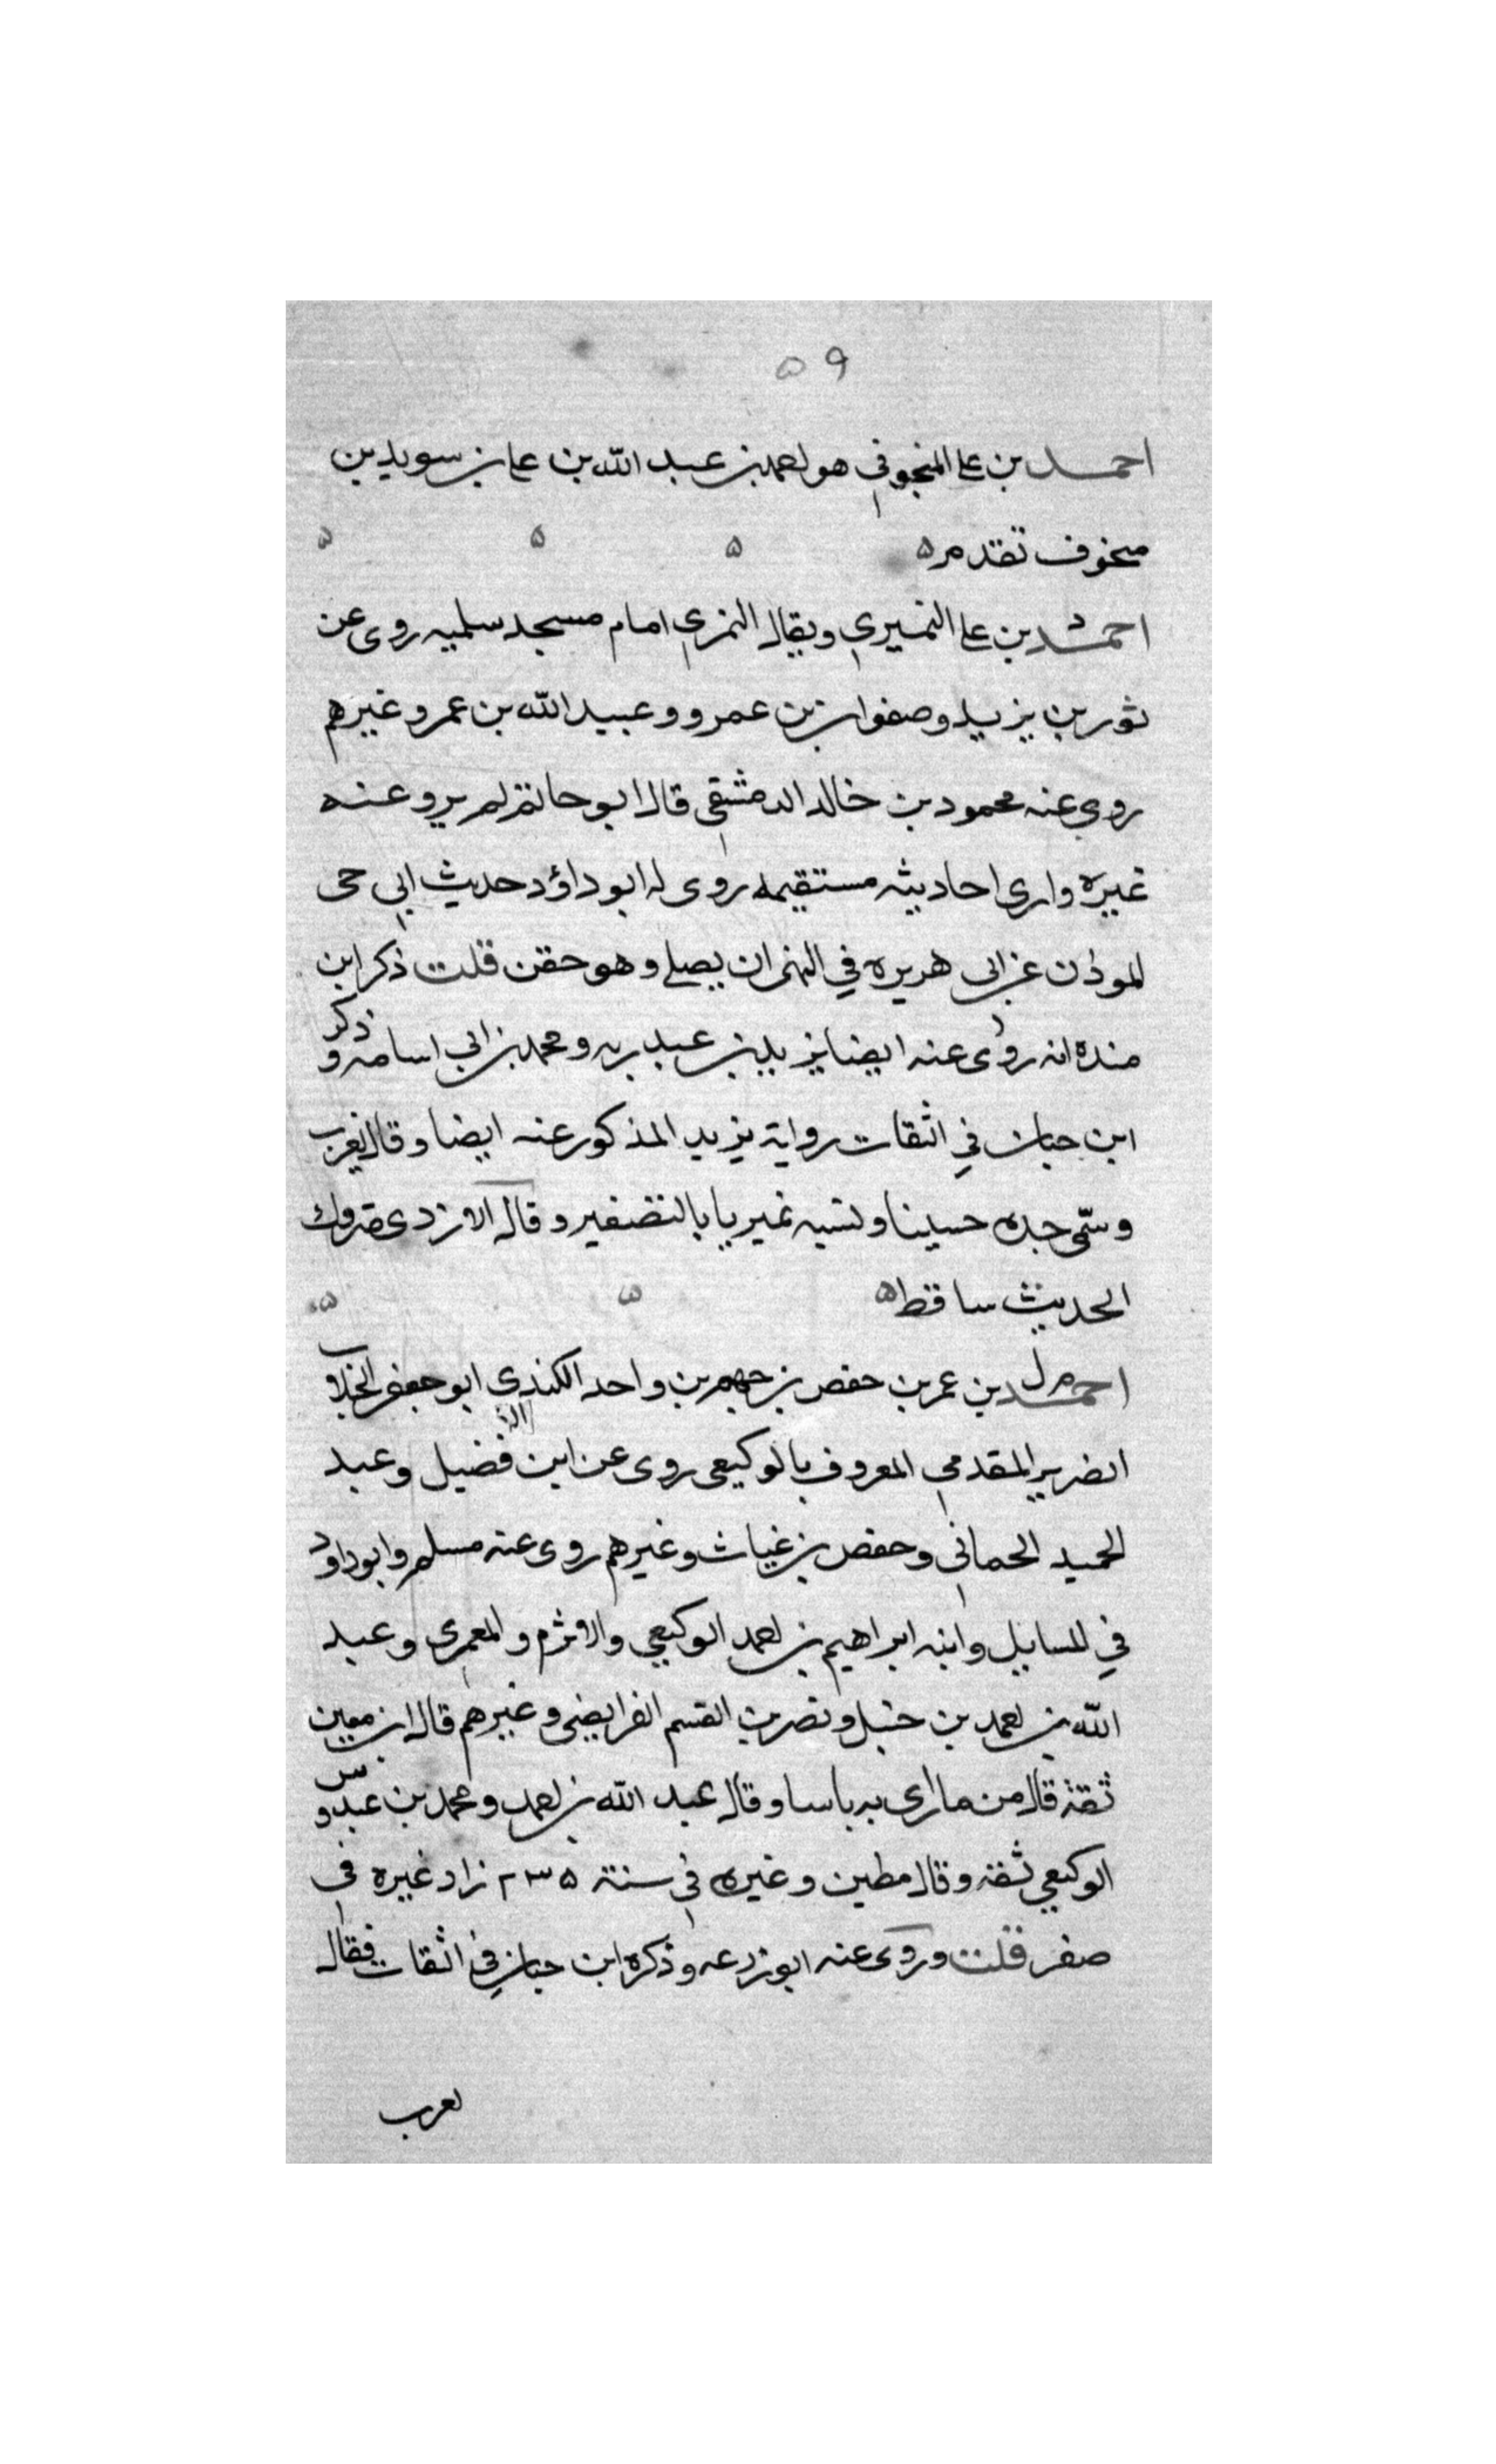 ٥٩
احمد بن علي المنجوفي هو احمد بن عبد الله بن علي بن سويد بن
منجوف تقدم ه ه ه ه
احمد بن علي النميري ويقال النمري امام مسجد سلميه روى عن
ثور بن يزيد وصفوان بن عمرو وعبيد الله بن عمر وغيرهم
روى عنه محمود بن خالد الدمشقي قال ابو حاتم لم يرو عنه
غيره وارى احاديثه مستقيمه روى له ابو داؤد حديث ابي حي
الموذن عن ابي هريره في النهي ان يصلي وهو حقن قلت ذكر ابن
منده انه روى عنه ايضا يزيد بن عبد ربه ومحمد بن ابي اسامه وذكر
ابن حبان في الثقات رواية يزيد المذكور عنه ايضا وقال يغرب
وسمى جده حسينا ونسبه نميريا بالتصغير وقال الازدى متروك
الحديث ساقط ه ه ه
احمد بن عمر بن حفص بن جهم بن واحد الكندي ابو جعفر الجلاب
الضرير المقدمي المعروف بالوكيعي روى عن ابن فضيل وعبد
الحميد الحماني وحفص بن غياث وغيرهم روى عنه مسلم وابو داود
في المسايل وابنه ابراهيم بن احمد الوكيعي والاثرم والمعمرى وعبد
الله بن احمد بن حنبل ونصر بن القسم الفرايضي وغيرهم قال ابن معين
ثقة قال من ما ارى به باسا وقال عبد الله بن احمد ومحمد بن عبدوس
الوكيعي ثقة وقال مطين وغيره في سنة ٢٣٥ زاد غيره في
صفر قلت وروى عنه ابو زرعه وذكره ابن حبان في الثقات فقال
لعرب